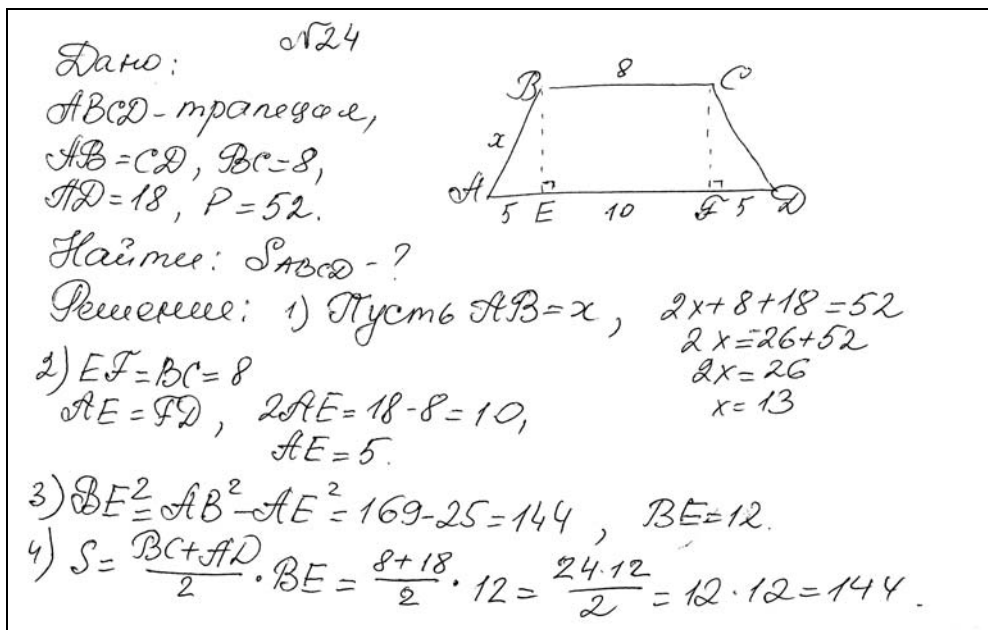 №24
Дано:
ABCD - трапеция,
AB = CD, BC = 8,
AD = 18, P = 52.
B 8 C
x
A 5 E 10 F 5 D
Найти: S_ABCD - ?
Решение: 1) Пусть AB = x, 2x + 8 + 18 = 52
2x = -26 + 52
2x = 26
x = 13
2) EF = BC = 8
AE = FD, 2AE = 18 - 8 = 10,
AE = 5.
3) BE² = AB² - AE² = 169 - 25 = 144, BE = 12.
4) S = (BC + AD)/2 · BE = (8 + 18)/2 · 12 = (24 · 12)/2 = 12 · 12 = 144.